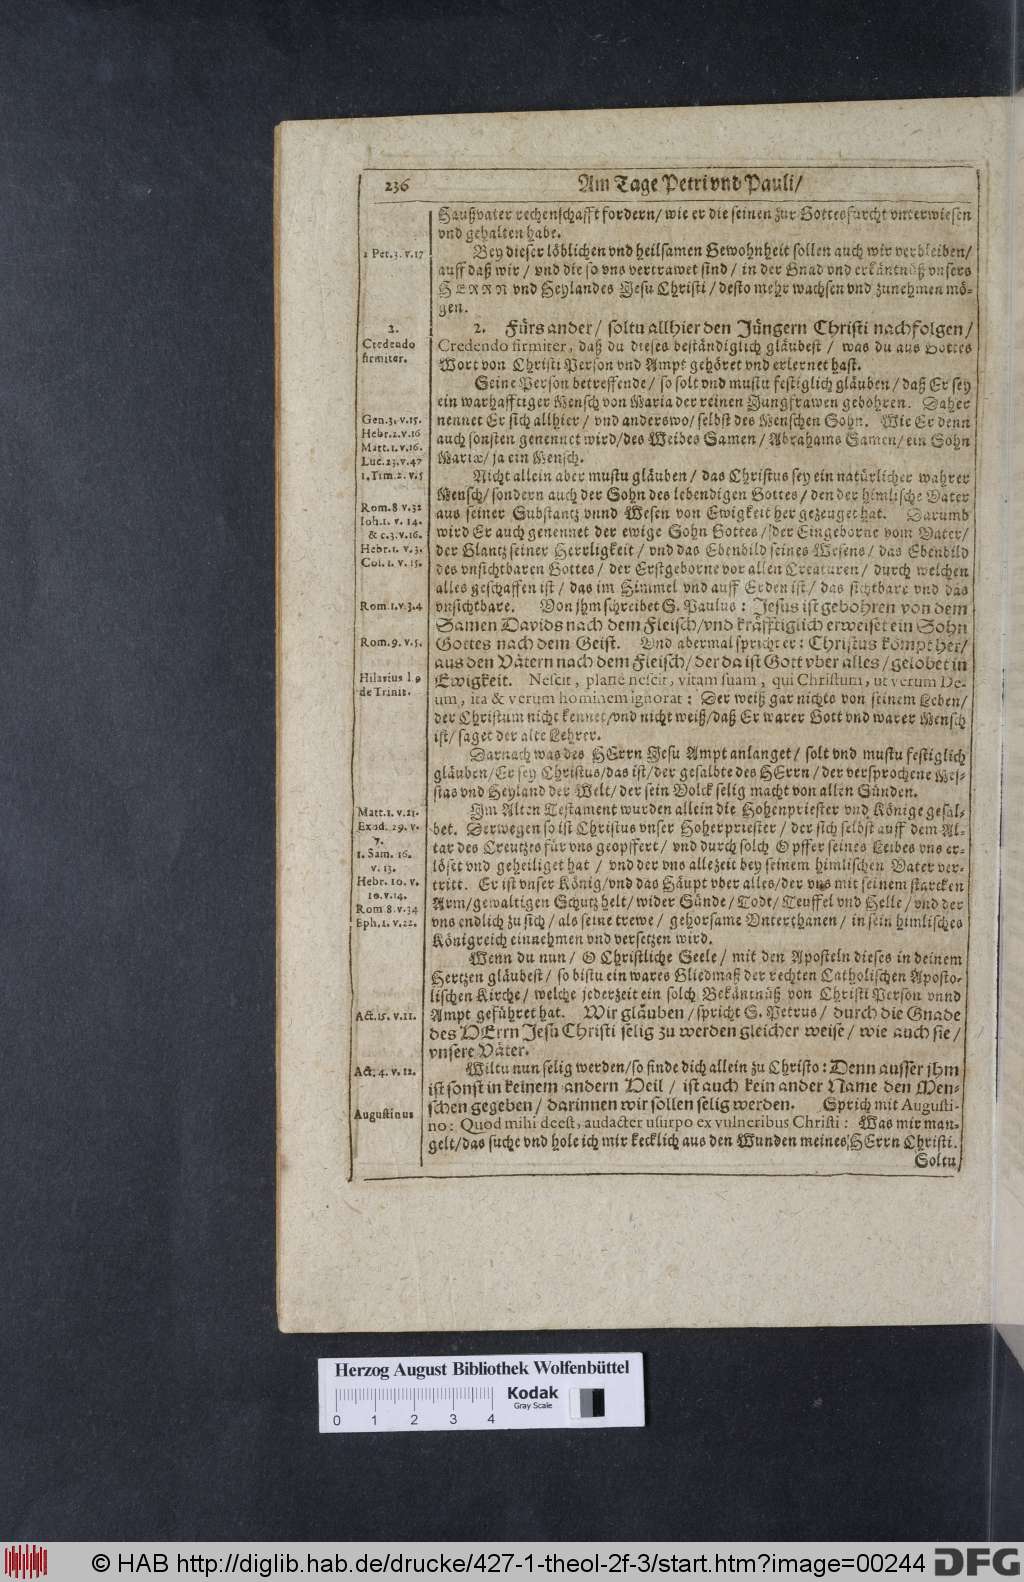 236
Am Tage Petri vnd Pauli/
Haußvater rechenschafft fordern/ wie er die seinen zur Gottesfurcht vnterwiesen
vnd gehalten habe.
2 Pet. 3. v. 17
Bey dieser löblichen vnd heilsamen Gewohnheit sollen auch wir verbleiben/
auff daß wir/ vnd die so vns vertrawet sind/ in der Gnad vnd erkäntnüß vnsers
HERRN vnd Heylandes Jesu Christi/ desto mehr wachsen vnd zunehmen mö-
gen.
2.
Credendo
firmiter.
2. Fürs ander/ soltu allhier den Jüngern Christi nachfolgen/
Credendo firmiter, daß du dieses beständiglich gläubest/ was du aus Gottes
Wort von Christi Person vnd Ampt gehöret vnd erlernet hast.
Seine Person betreffende/ so solt vnd mustu festiglich gläuben/ daß Er sey
ein warhafftiger Mensch von Maria der reinen Jungfrawen gebohren. Daher
Gen. 3. v. 15.
Hebr. 2. v. 16
Matt. 1. v. 16.
Luc. 23. v. 47
1. Tim. 2. v. 5
nennet Er sich allhier/ vnd anderswo/ selbst des Menschen Sohn. Wie Er denn
auch sonsten genennet wird/ des Weibes Samen/ Abrahams Samen/ ein Sohn
Mariæ/ ja ein Mensch.
Nicht allein aber mustu gläuben/ das Christus sey ein natürlicher wahrer
Mensch/ sondern auch der Sohn des lebendigen Gottes/ den der himlische Vater
Rom. 8. v. 32
Ioh. 1. v. 14.
& c. 3. v. 16.
Hebr. 1. v. 3.
Col. 1. v. 15.
aus seiner Substantz vnnd Wesen von Ewigkeit her gezeuget hat. Darumb
wird Er auch genennet der ewige Sohn Gottes/ der Eingeborne vom Vater/
der Glantz seiner Herrligkeit/ vnd das Ebenbild seines Wesens/ das Ebenbild
des vnsichtbaren Gottes/ der Erstgeborne vor allen Creaturen/ durch welchen
alles geschaffen ist/ das im Himmel vnd auff Erden ist/ das sichtbare vnd das
Rom. 1. v. 3. 4
vnsichtbare. Von jhm schreibet S. Paulus: Jesus ist gebohren von dem
Samen Davids nach dem Fleisch/ vnd kräfftiglich erweiset ein Sohn
Rom. 9. v. 5.
Gottes nach dem Geist. Vnd abermal spricht er: Christus kömpt her/
aus den Vätern nach dem Fleisch/ der da ist Gott vber alles/ gelobet in
Hilarius l. 9
de Trinit.
Ewigkeit. Nescit, planè nescit, vitam suam, qui Christum, ut verum De-
um, ita & verum hominem ignorat: Der weiß gar nichts von seinem Leben/
der Christum nicht kennet/ vnd nicht weiß/ daß Er warer Gott vnd warer Mensch
ist/ saget der alte Lehrer.
Darnach was des HErrn Jesu Ampt anlanget/ solt vnd mustu festiglich
gläuben/ Er sey Christus/ das ist/ der gesalbte des HErrn/ der versprochene Mes-
sias vnd Heyland der Welt/ der sein Volck selig macht von allen Sünden.
Matt. 1. v. 21.
Exod. 29. v.
7.
1. Sam. 16.
v. 13.
Hebr. 10. v.
10. v. 14.
Rom 8. v. 34
Eph. 1. v. 22.
Im Alten Testament wurden allein die Hohenpriester vnd Könige gesal-
bet. Derwegen so ist Christus vnser Hoherpriester/ der sich selbst auff dem Al-
tar des Creutzes für vns geopffert/ vnd durch solch Opffer seines Leibes vns er-
löset vnd geheiliget hat/ vnd der vns allezeit bey seinem himlischen Vater ver-
tritt. Er ist vnser König/ vnd das Häupt vber alles/ der vns mit seinem starcken
Arm/ gewaltigen Schutz helt/ wider Sünde/ Todt/ Teuffel vnd Helle/ vnd der
vns endlich zu sich/ als seine trewe/ gehorsame Vnterthanen/ in sein himlisches
Königreich einnehmen vnd versetzen wird.
Wenn du nun/ O Christliche Seele/ mit den Aposteln dieses in deinem
Hertzen gläubest/ so bistu ein wares Gliedmaß der rechten Catholischen Aposto-
lischen Kirche/ welche jederzeit ein solch Bekäntnüß von Christi Person vnnd
Act. 15. v. 11.
Ampt geführet hat. Wir gläuben/ spricht S. Petrus/ durch die Gnade
des HErrn Jesu Christi selig zu werden gleicher weise/ wie auch sie/
vnsere Väter.
Act. 4. v. 12.
Wiltu nun selig werden/ so finde dich allein zu Christo: Denn ausser jhm
ist sonst in keinem andern Heil/ ist auch kein ander Name den Men-
Augustinus
schen gegeben/ darinnen wir sollen selig werden. Sprich mit Augusti-
no: Quod mihi deest, audacter usurpo ex vulneribus Christi: Was mir man-
gelt/ das suche vnd hole ich mir kecklich aus den Wunden meines HErrn Christi.
Soltu
Herzog August Bibliothek Wolfenbüttel
0 1 2 3 4
Kodak
Gray Scale
© HAB http://diglib.hab.de/drucke/427-1-theol-2f-3/start.htm?image=00244
DFG